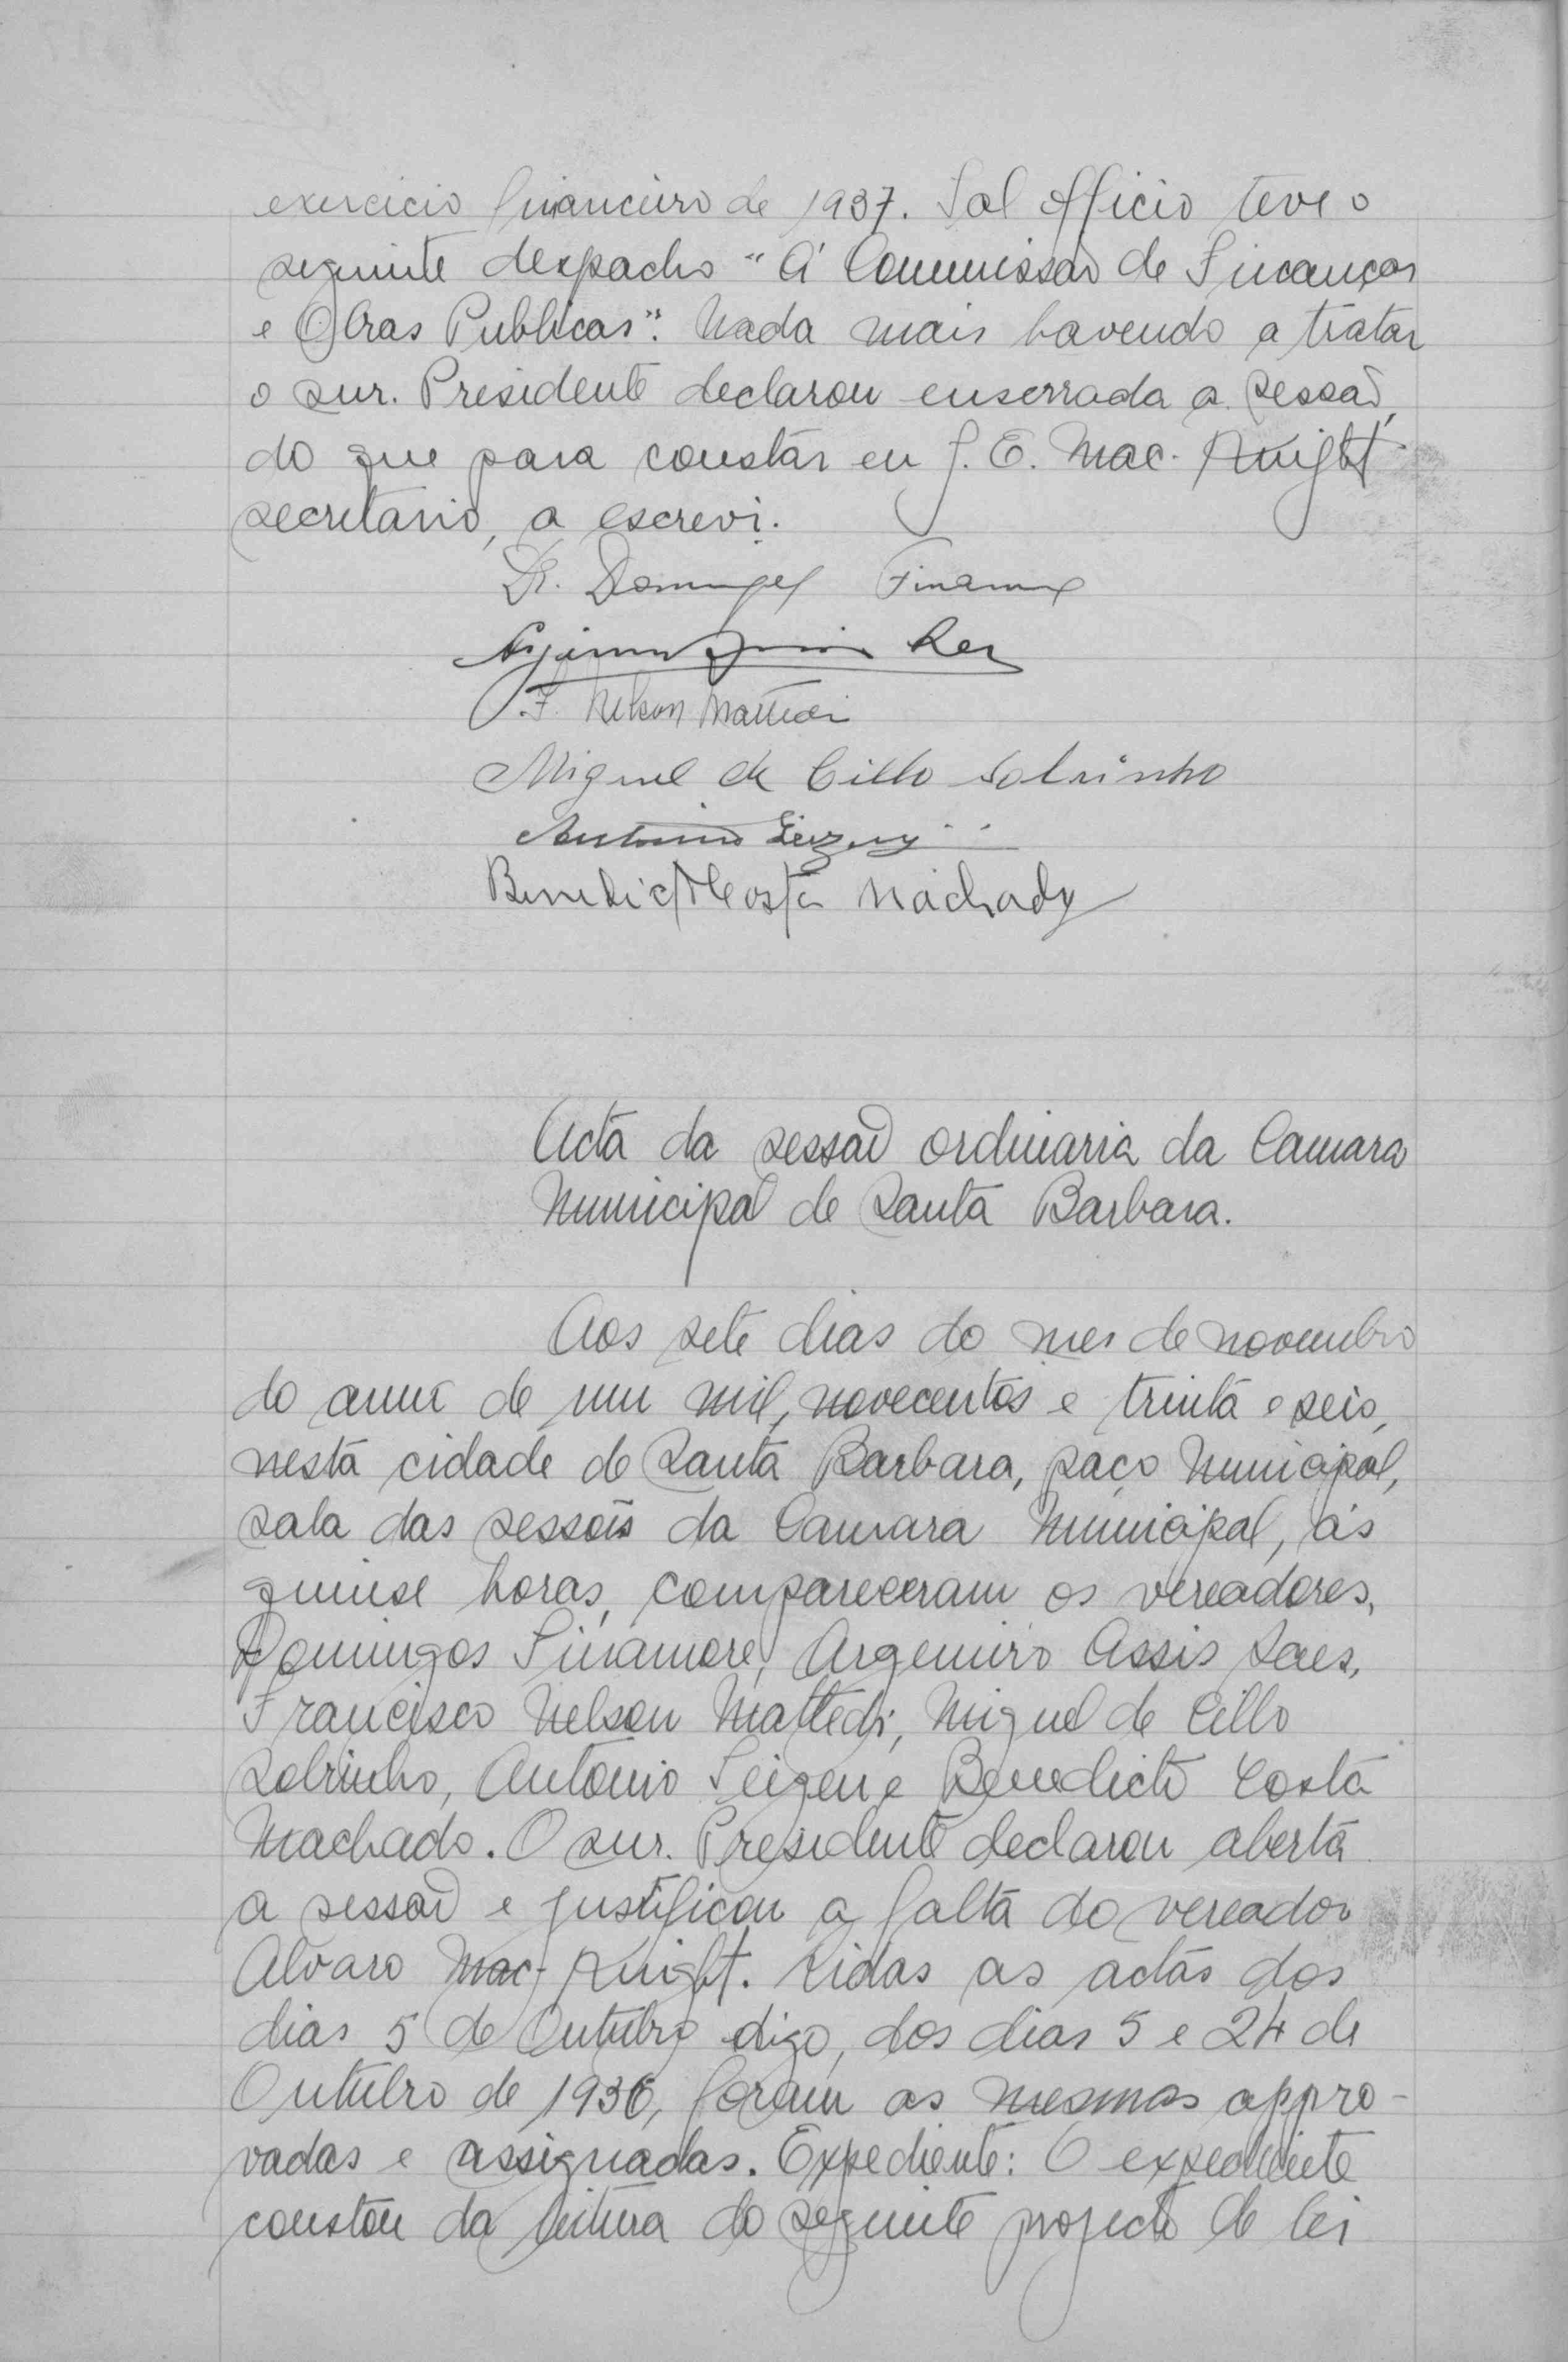 exercicio financeiro de 1937. Tal officio teve o
seguinte despacho "Á Commissão de Finanças
e Obras Publicas". Nada mais havendo a tratar
o snr. Presidente declarou enserrada a sessão,
do que para constar eu J. E. Mac-Knight
secretario, a escrevi.
Dr. Domingos Finamore
F. Nelson Mattedi
Miguel de Cillo Sobrinho
Antonio
Benedicto Costa Machado
Acta da sessão ordinaria da Camara
Municipal de Santa Barbara.
Aos sete dias do mes de novembro
do anno de um mil, novecentos e trinta e seis,
nesta cidade de Santa Barbara, paço Municipal,
sala das sessões da Camara Municipal, ás
quinse horas, compareceram os vereadores,
Domingos Finamore, Argemiro Assis Saes,
Francisco Nelson Mattedi, Miguel de Cillo
Sobrinho, Antonio e Benedicto Costa
Machado. O snr. Presidente declarou aberta
a sessão e justificou a falta do vereador
Alvaro Mac-Knight. Lidas as actas dos
dias 5 de Outubro digo, dos dias 5 e 24 de
Outubro de 1936, foram as mesmas appro-
vadas e assignadas. Expediente: O expediente
constou da leitura do seguinte projecto de lei